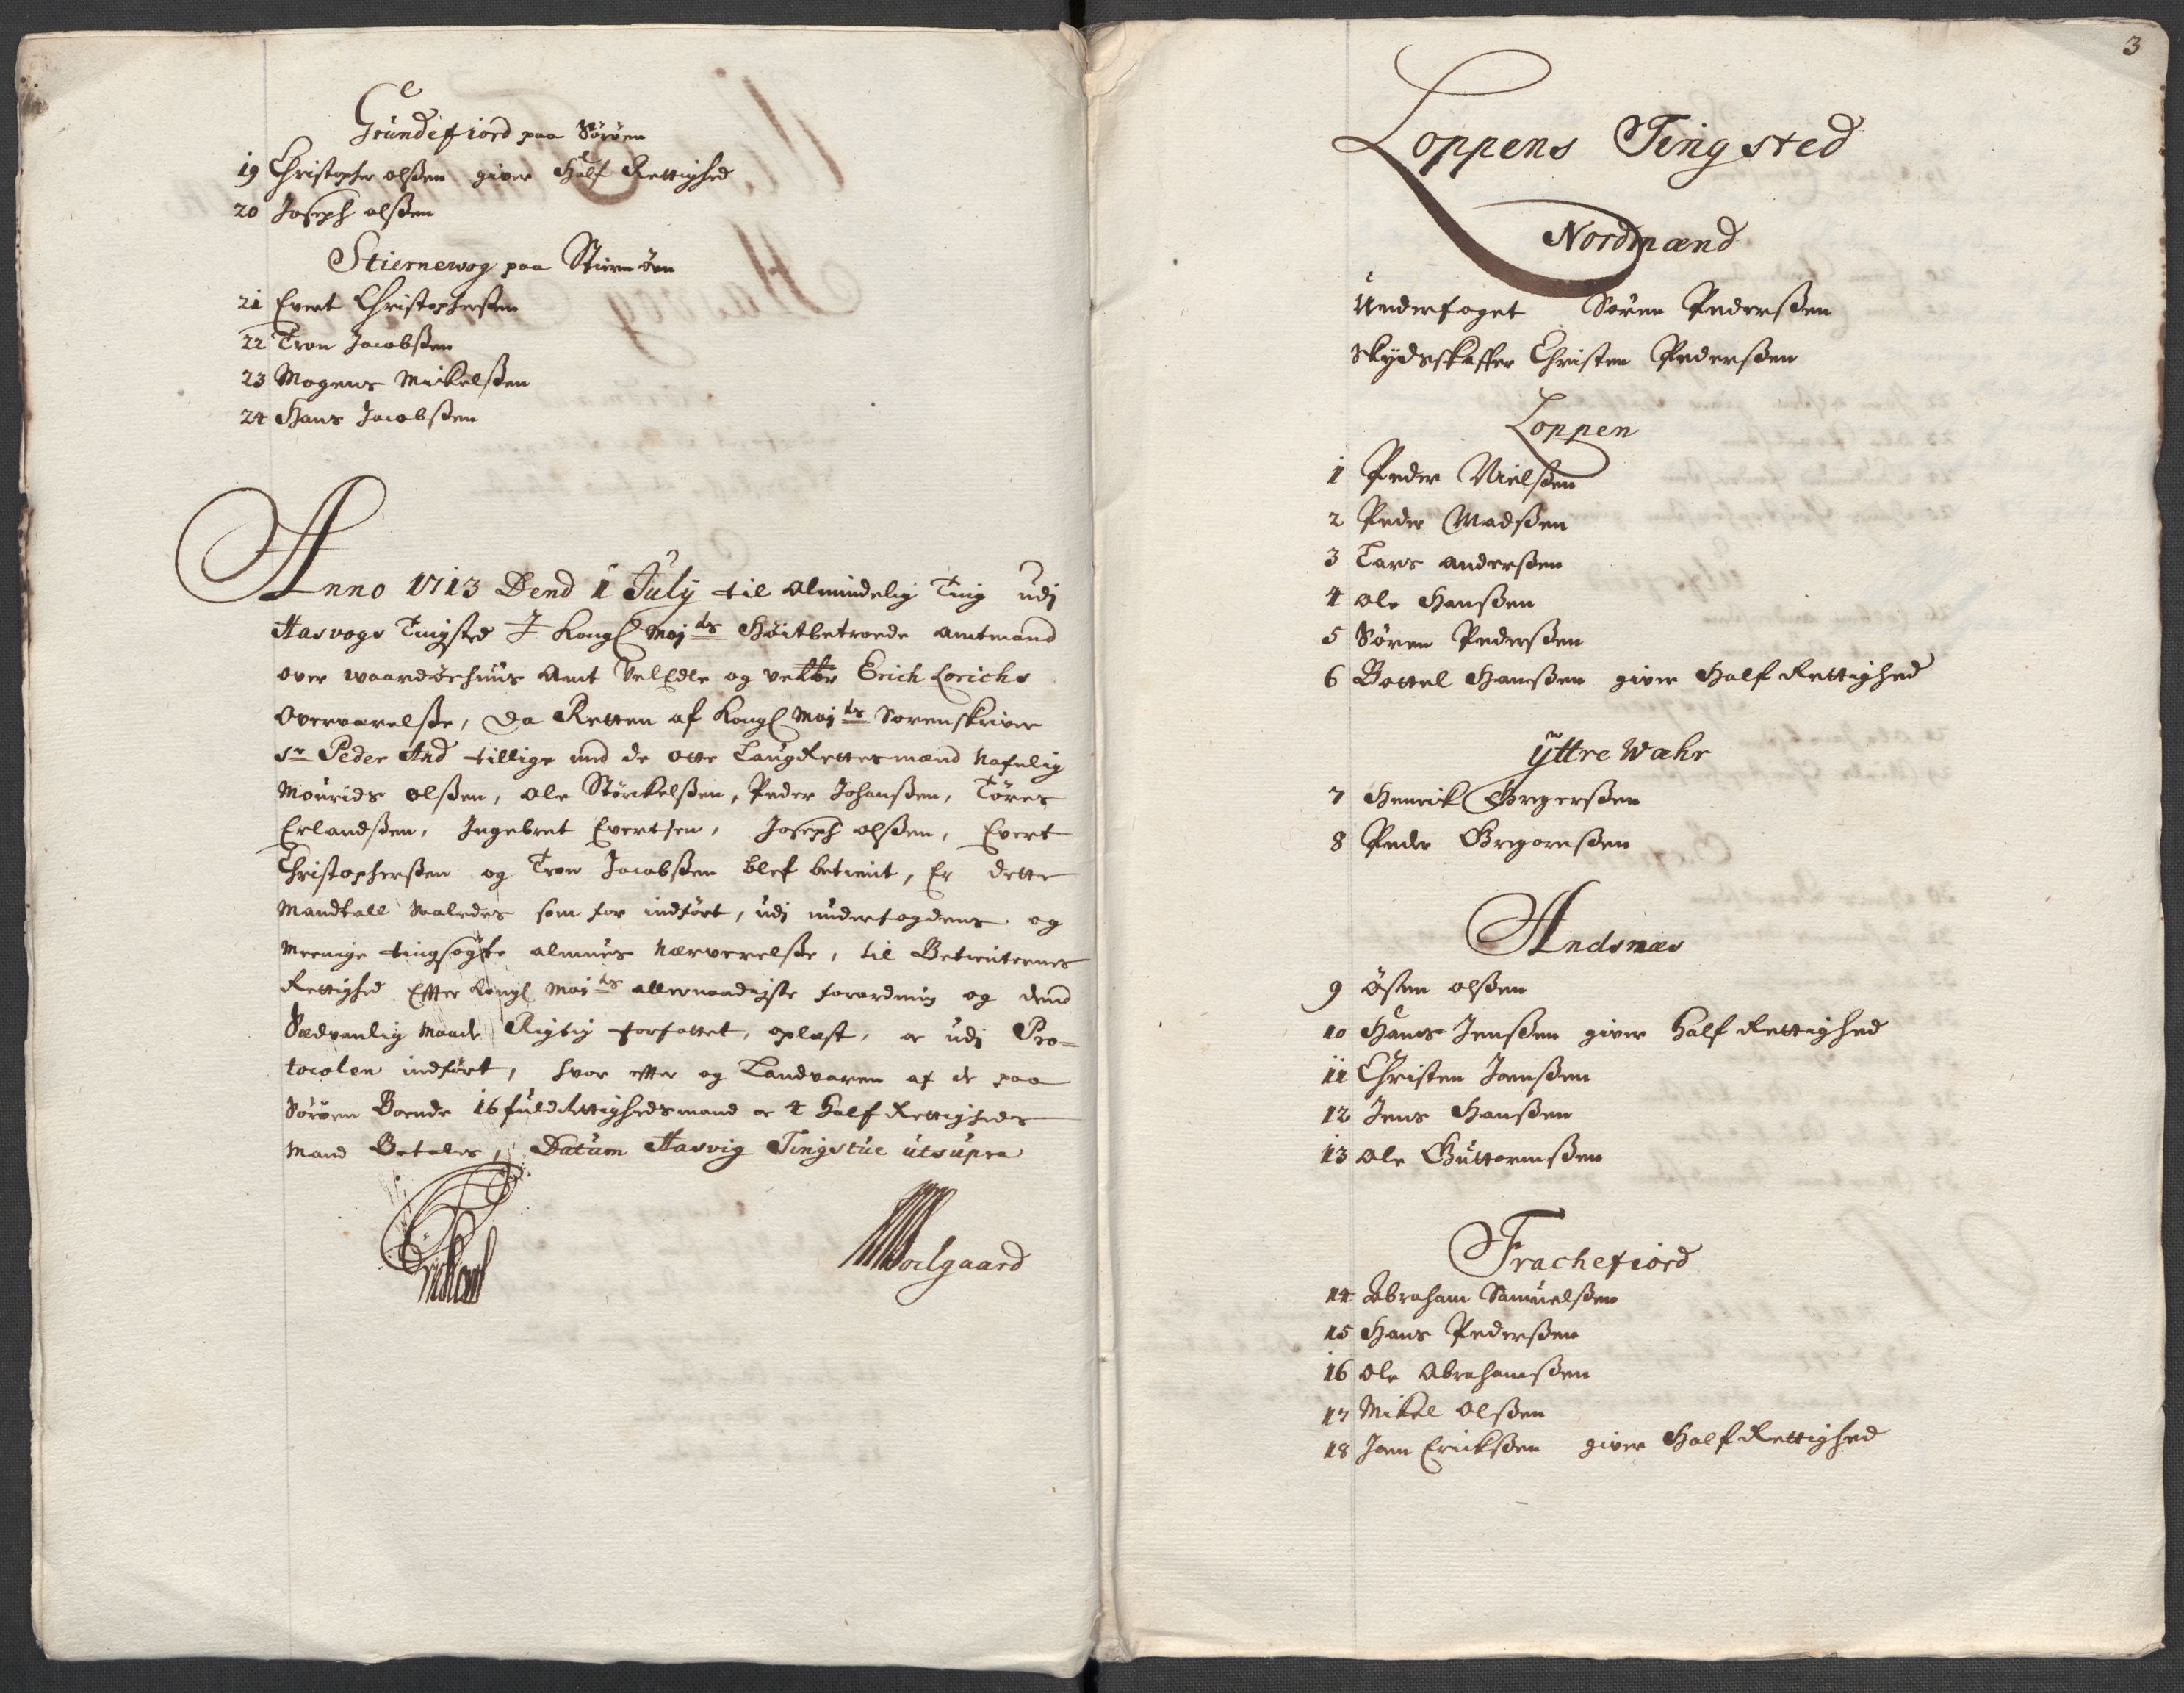 Grundefiord paa Sørøen
19 Christopher olßen giver Half Rettighed
20 Joseph olßen
Stiernewog paa Stiernøen
21 Evert Christopherßen
22 Tron Jacobßen
23 Mogens Mickelßen
24 Hans Jacobßen
Anno 1713 Dend 1 July til Almindelig Ting udj
Hasvogs Tingsted I Kongl Maj ds Høitbetroede Amtmand
over waardøehuus Amt VelEdle og Erich Lorichs
Overværelße, Da Retten af Kongl Maj ds Sorenskriver
Sr Peder And tillige med de otte LaugRettesmænd Nafnlig
Mourids olßen, Ole Størckelßen, Peder Johanßen, Töres
Erlandßen, Ingebret Evertsen, Joseph olßen, Evert
Christopherßen og Tron Jacobßen blef betient, Er dette
Mandtall saaledes som for indført, udj underfogdens og
meenige tingsøgte almues Nærverelße, til Betienternes
Rettighed Effter Kongl Maj ds allernaadigste forordning og dend
Sædvanlig maade Rigtig forfattet, oplæst, oc udj Pro-
tocolen indført, hvor effter og Landvaren af de paa
Sørøen Boende 16 fuldRettighedsmænd oc 4 half Rettigheds
mænd Betales, Datum Hasvig Tingstue utsupra
Soelgaard
3
Loppens Tingsted
Nordmænd
Underfoget Søren Pederßen
Skydsskaffer Christen Pederßen
Loppen
1 Peder Nielßen
2 Peder Madßen
3 Lars Anderßen
4 Ole Hanßen
5 Søren Pederßen
6 Bottel Hanßen giver Half Rettighed
yttre Wahr
7 Henrick Gregerßen
8 Peder Gregorsßen
Andsnæs
9 Östen olßen
10 Hans Jenßen giver Half Rettighed
11 Christen Joenßen
12 Jens Hanßen
13 Ole Guttormßen
Frachefiord
14 Abraham Samuelßen
15 Hans Pederßen
16 Ole Abrahamßen
17 Mikel Olßen
18 Joen Erickßen giver Half Rettighed